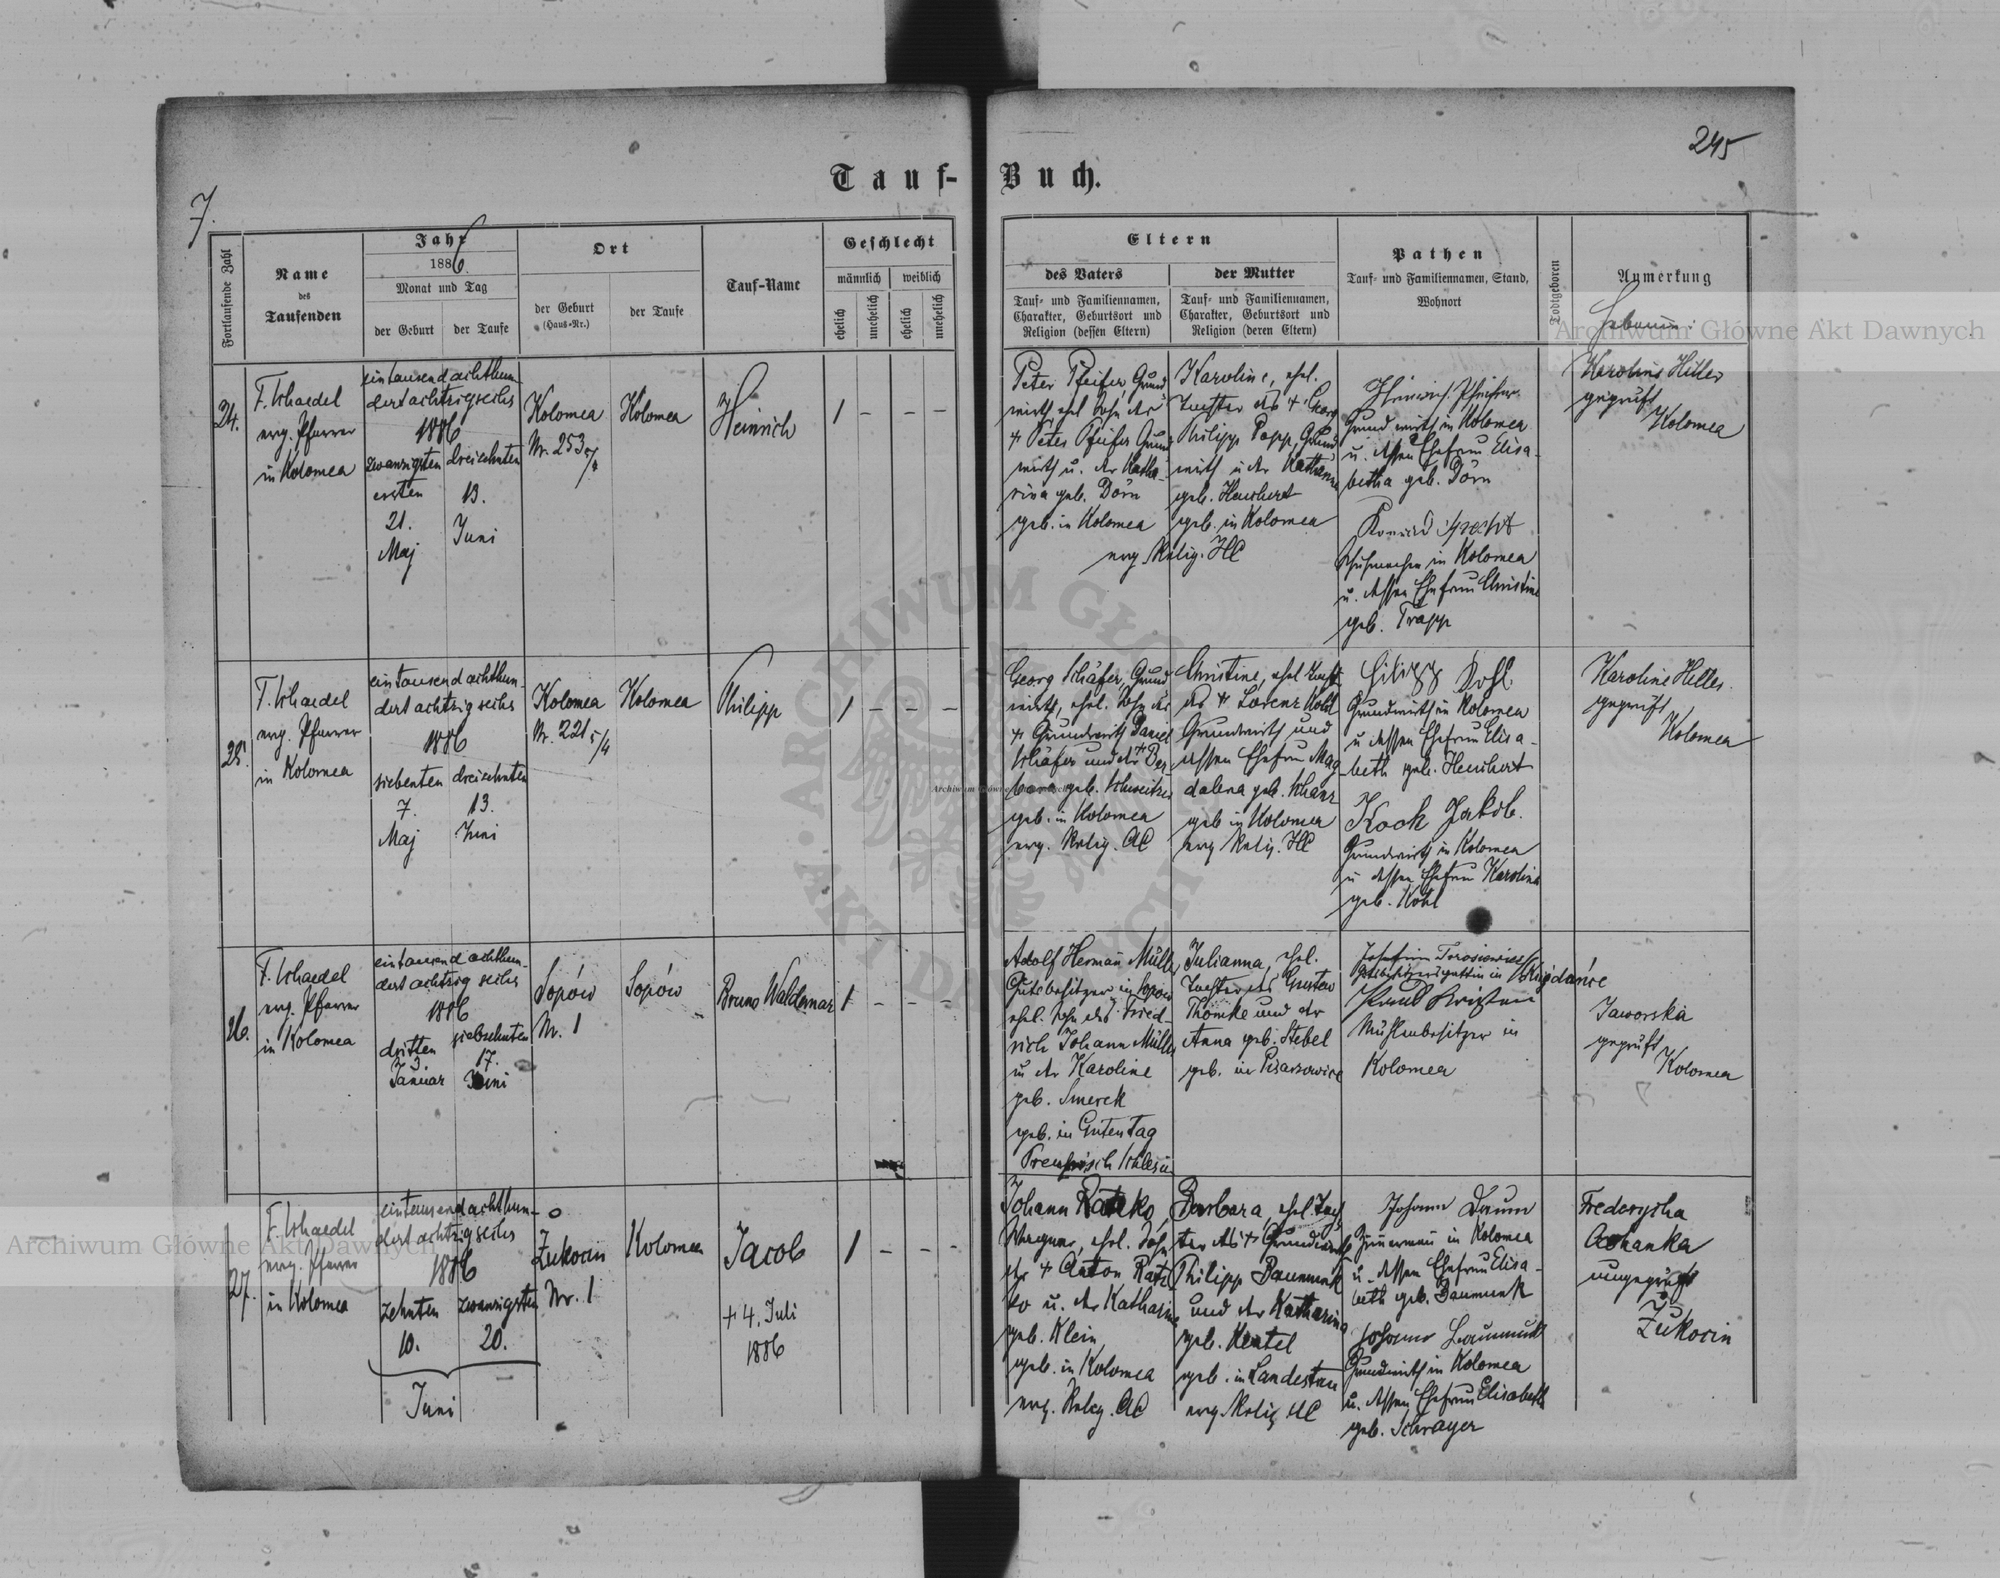 245
7.
Tauf-Buch.
Fortlaufende Zahl
Name
des
Taufenden
Jahr
1886.
Monat und Tag
der Geburt
der Taufe
Ort
der Geburt
(Haus-Nr.)
der Taufe
Tauf-Name
Geschlecht
männlich
weiblich
ehelich
unehelich
ehelich
unehelich
Eltern
des Vaters
Tauf- und Familiennamen,
Charakter, Geburtsort und
Religion (dessen Eltern)
der Mutter
Tauf- und Familiennamen,
Charakter, Geburtsort und
Religion (deren Eltern)
Pathen
Tauf- und Familiennamen, Stand,
Wohnort
Todtgeboren
Anmerkung
Hebamme:
24.
F. Schaedel
evg. Pfarrer
in Kolomea
eintausend achthun-
dert achtzig sechs
1886
zwanzigsten
ersten
21.
Maj
dreizehnten
13.
Juni
Kolomea
Nr. 253 5/4
Kolomea
Heinrich
1 - - -
Peter Pfeifer, Grund
wirth, ehel. Sohn des
+ Peter Pfeifer Grund
wirth u. der Katha-
rina geb. Dörn
geb. in Kolomea
Karoline, ehel.
Tochter des + Georg
Philipp Popp, Grund
wirth u der Katharina
geb. Heuchert
geb. in Kolomea
evg. Relig. HC
Heinrich Pfeifer
Grundwirth in Kolomea
u. dessen Ehefrau Elisa-
betha geb. Dörn
Konrad Specht
Schuhmacher in Kolomea
u. dessen Ehefrau Christine
geb. Trapp
Karoline Hilles
geprüft
Kolomea
25.
F. Schaedel
evg. Pfarrer
in Kolomea
eintausend achthun-
dert achtzig sechs
1886
siebenten
7.
Maj
dreizehnten
13.
Juni
Kolomea
Nr. 221 5/4
Kolomea
Philipp
1 - - -
Georg Schäfer, Grund
wirth, ehel. Sohn des
+ Grundwirth Daniel
Schäfer und der + Bar-
bara geb. Schweitzer
geb. in Kolomea
evg. Relig. AC
Christine, ehel. Tocht.
des + Lorenz Kohl
Grundwirth und
dessen Ehefrau Mag-
dalena geb. Schanz
geb. in Kolomea
evg. Relig. HC
Philipp Kohl
Grundwirth in Kolomea
u dessen Ehefrau Elisa-
beth geb. Heuchert
Koch Jakob.
Grundwirth in Kolomea
u dessen Ehefrau Karoline
geb. Kohl
Karoline Hilles
geprüft
Kolomea
26.
F. Schaedel
evg. Pfarrer
in Kolomea
eintausend achthun-
dert achtzig sechs
1886
dritten
3.
Januar
siebzehnten
17.
Juni
Sopów
Nr. 1
Sopów
Bruno Waldemar
1 - - -
Adolf Herman Müller
Gutsbesitzer in Sopów
ehel. Sohn des Fried-
rich Johann Müller
u der Karoline
geb. Smerek
geb. in Gutentag
Preußisch Schlesien
Julianna, ehel.
Tochter des Gustav
Thomke und der
Anna geb. Stebel
geb. in Pisarzowice
Josefine Torosiewicz
Gutsbesitzersgattin in
Mühlenbesitzer in
Kolomea
Jaworska
geprüft
Kolomea
27.
F. Schaedel
evg. Pfarrer
in Kolomea
eintausend achthun-
dert achtzig sechs
1886
zehnten
10.
zwanzigsten
20.
Juni
Żukocin
Nr. 1
Kolomea
Jacob
+ 4. Juli
1886
1 - - -
Johann Ratzko,
Wagner, ehel. Sohn
des + Anton Ratz-
ko u. der Katharina
geb. Klein
geb. in Kolomea
evg. Relig. AC
Barbara, ehel. Toch-
ter des + Grundwirth
Philipp Baumunk
und der Katharina
geb. Kentel
geb. in Landestreu
evg. Relig. HC
Johann Daum
Zimmermann in Kolomea
u. dessen Ehefrau Elisa-
beth geb. Baumunk
Johann Baumunk
Grundwirth in Kolomea
u. dessen Ehefrau Elisabeth
geb. Schrayer
Frederyska
ungeprüft
Żukocin
Archiwum Główne Akt Dawnych
Archiwum Główne Akt Dawnych